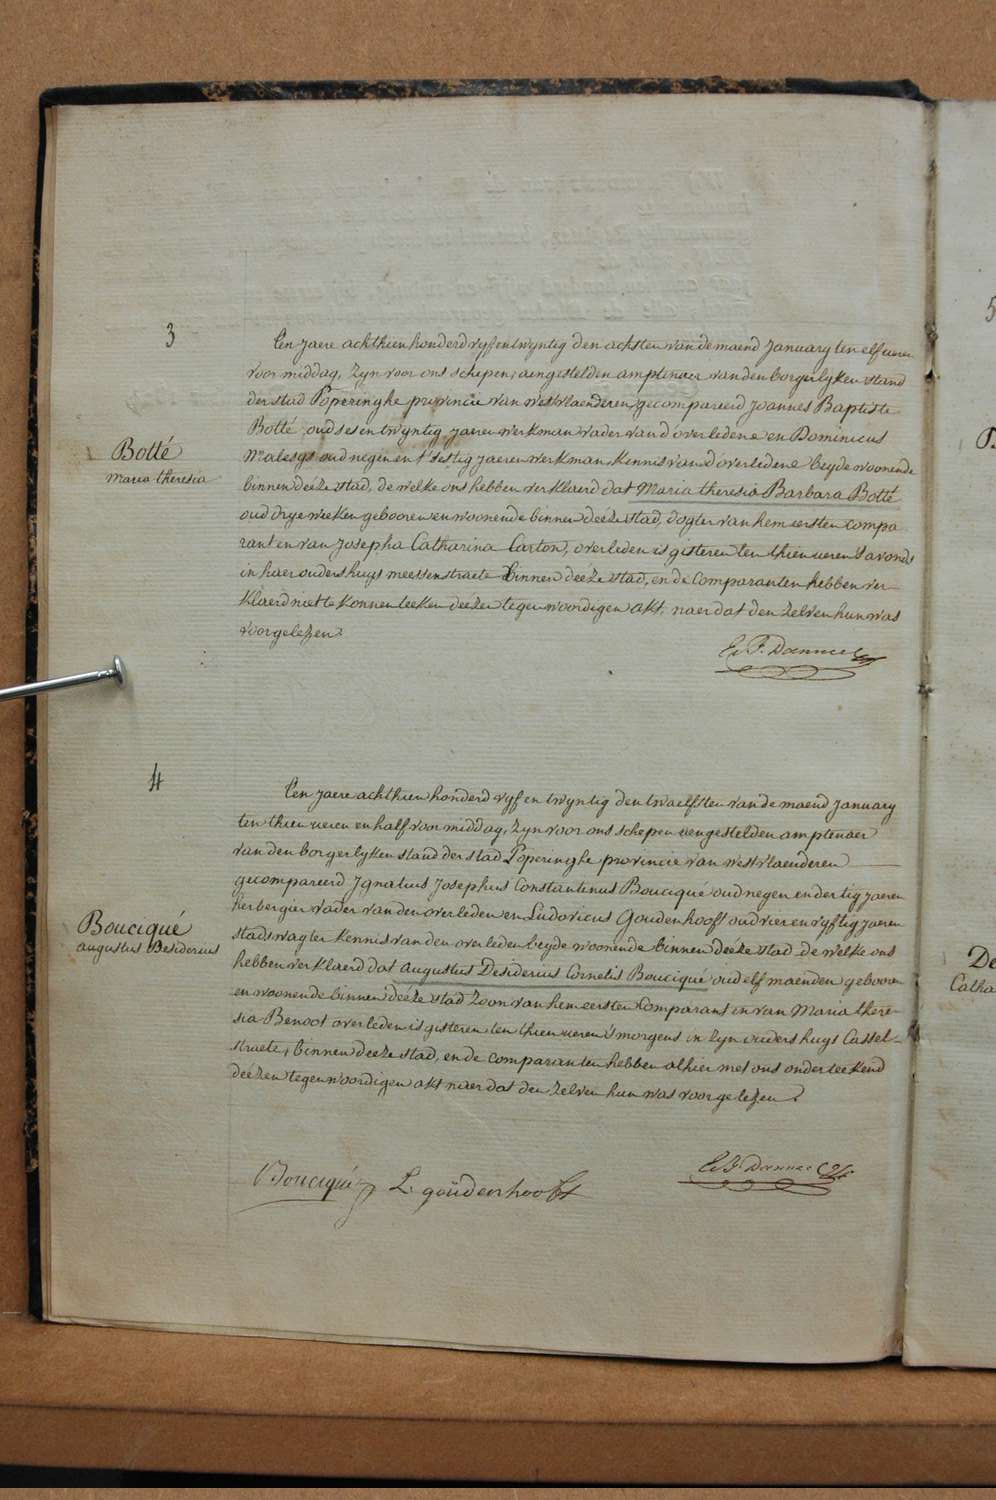 3
Botté
Maria theresia
Ten jaere achthien honderd vyf en twyntig den achsten van de maend January ten elf ueren
voor middag, zyn voor ons schepen, aengestelden amptenaer van den borgerlyken stand
der stad Poperinghe provincie van westvlaenderen, gecompareerd Joannes Baptiste
Botté oud ses en twyntig jaeren werkman vader van d'overledene en Dominicus
Malesys oud negin en t'sestig jaeren werkman, kennis van d'overledene beyde woonende
binnen deéze stad, de welke ons hebben verklaerd dat Maria theresia Barbara Botté
oud drye weeken gebooren en woonende binnen deéze stad, dogter van hem eersten compa
rant en van Josepha Catharina Carton, overleden is gisteren ten thien ueren s'avonds
in haer ouders huys meessenstraete binnen deéze stad, en de comparanten hebben ver-
klaerd niet te konnen teeken deézen tegenwoordigen akt, naer dat den zelven hun was
voorgelezen.
4
Bouciqué
augustus Desiderius
Ten jaere achthien honderd vyf en twyntig den twaelfsten van de maend January
ten thien ueren en half voor middag, zyn voor ons schepen aengestelden amptenaer
van den borgerlyken stand der stad Poperinghe provincie van westvlaenderen
gecompareerd Ignatius Josephus Constantinus Boucique oud negen en dertig jaeren
herbergier vader van den overleden en Ludovicus Goudenhooft oud vier en vyftig jaeren
stadswagter kennis van den overleden beyde woonende binnen deéze stad de welke ons
hebben verklaerd dat augustus Desiderius Cornelis Bouciqué oud elf maenden gebooren
en woonende binnen deéze stad zoon van hem eersten Comparant en van Maria there-
sia Benoot overleden is gisteren ten thien ueren s'morgens in zyn ouders huys Cassel-
straete, binnen deeze stad, en de comparanten hebben alhier met ons onderteekend
deézen tegenwoordigen akt naer dat den zelven hun was voorgelezen.
Bouciqué L. goüdenhooft
5
De
Catha